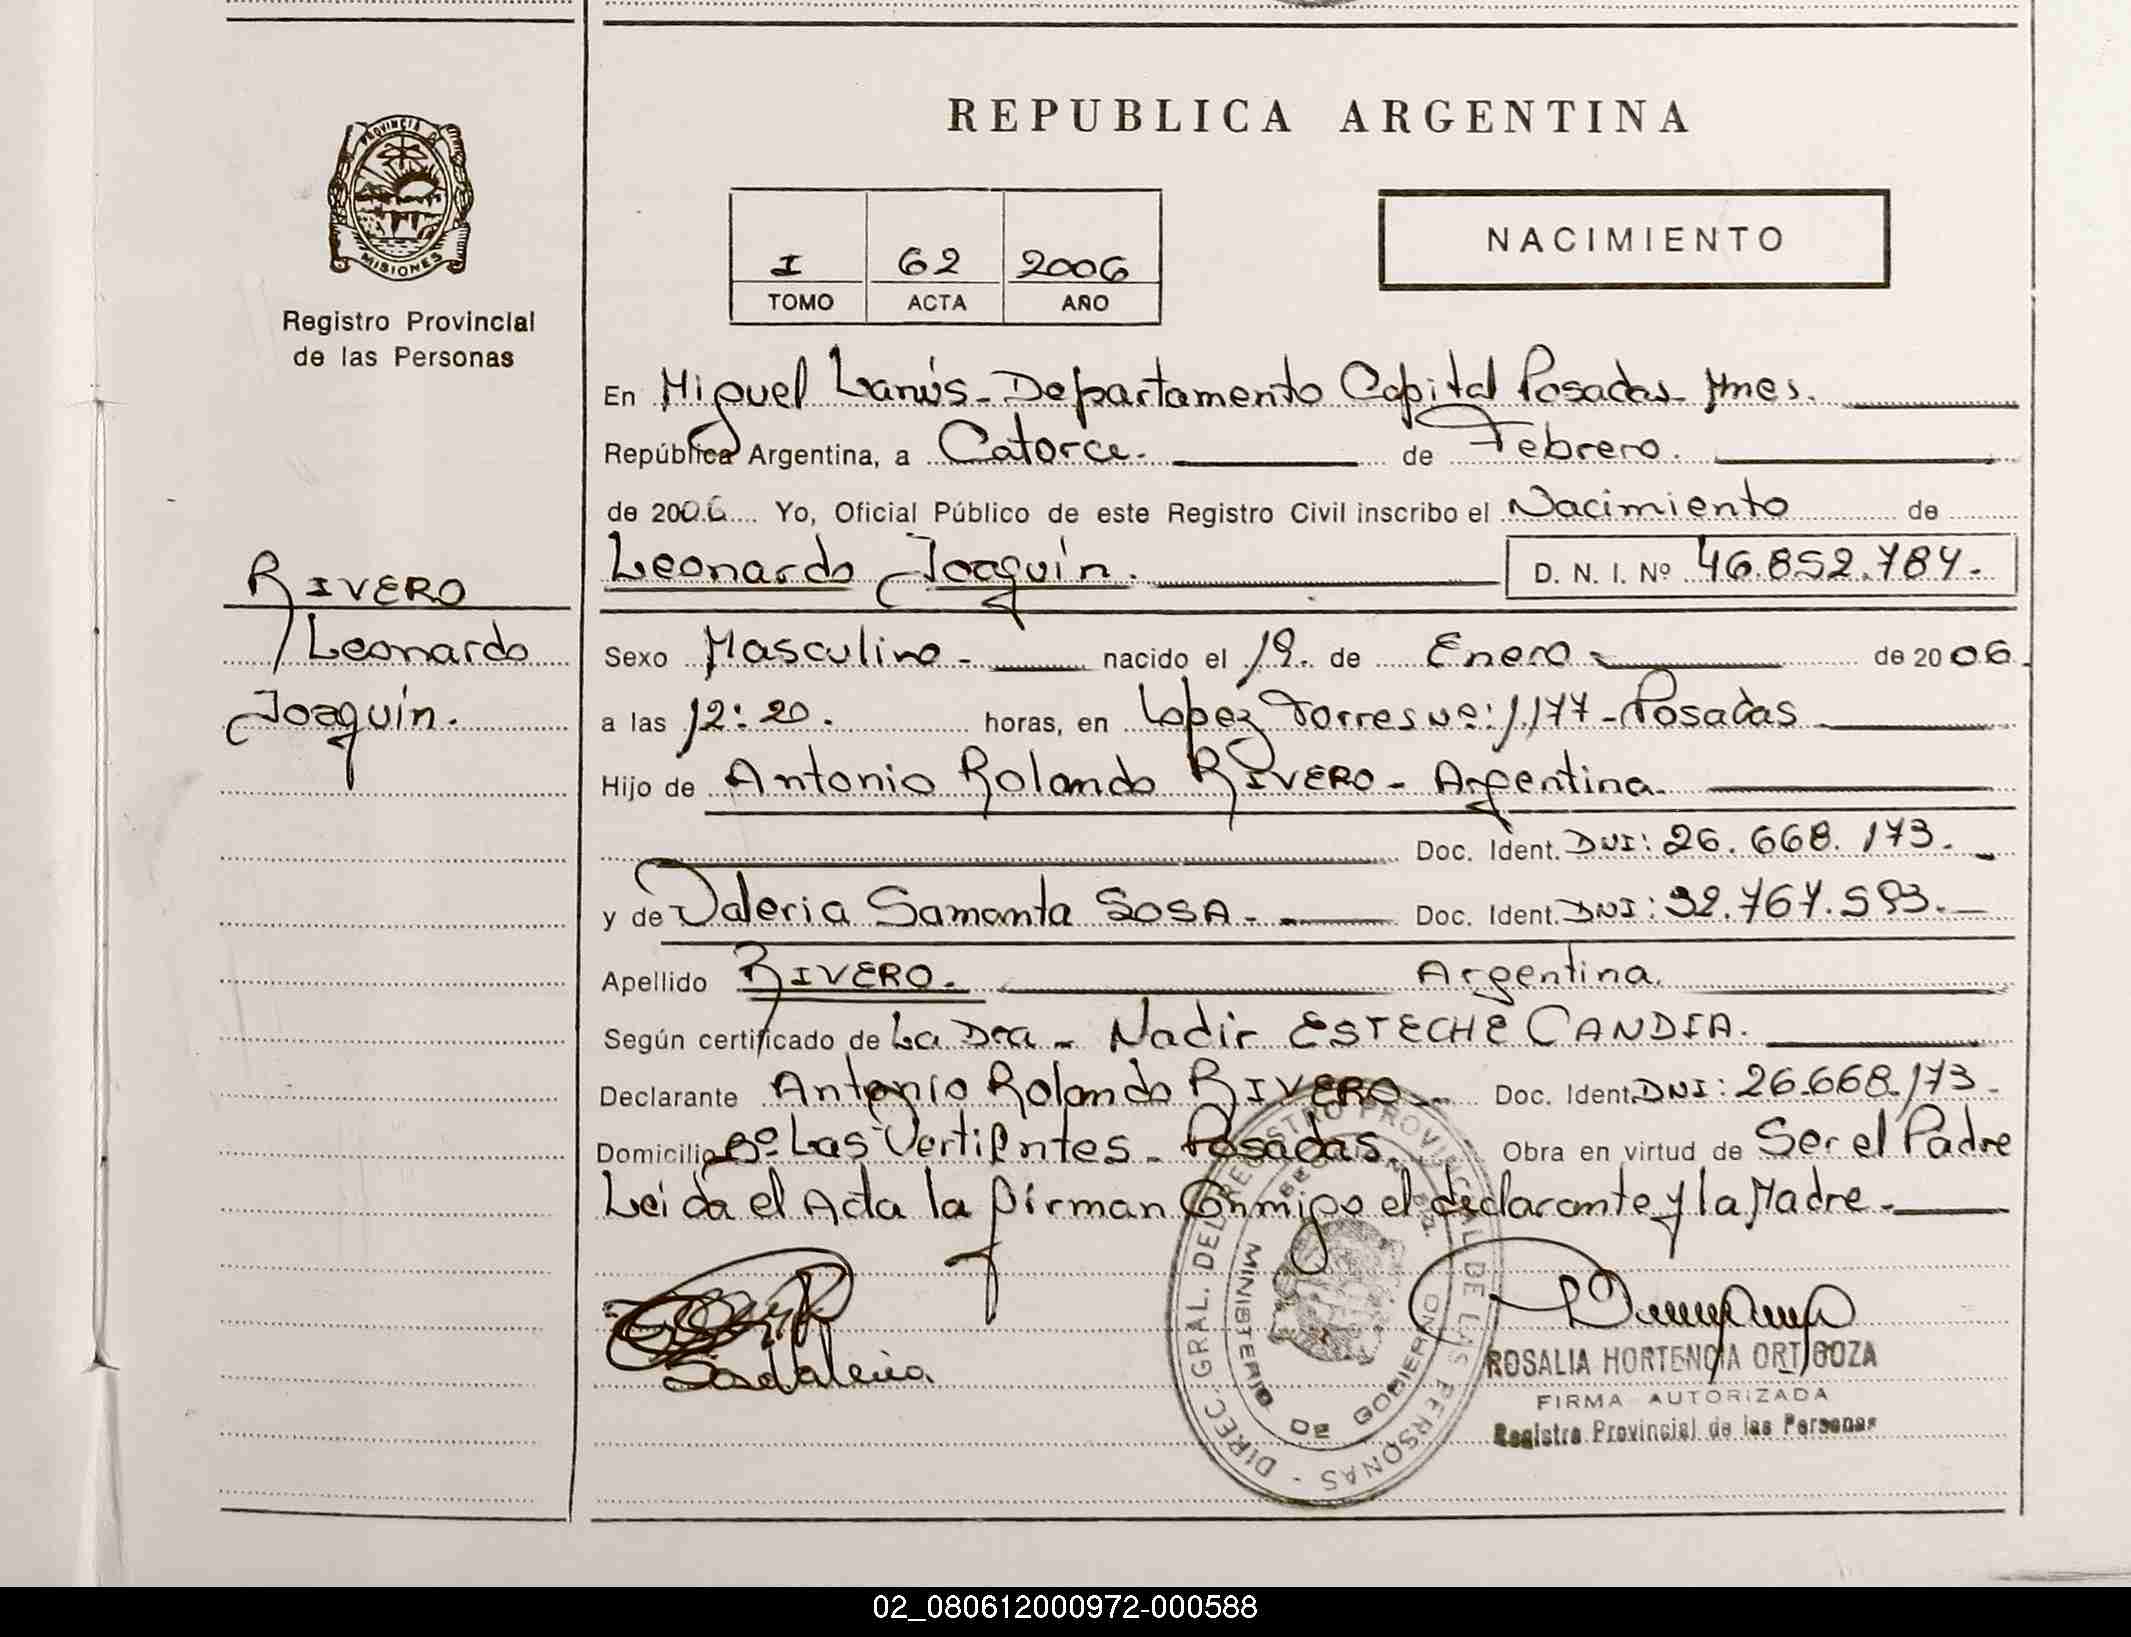 REPUBLICA ARGENTINA
PROVINCIA DE
MISIONES
Registro Provincial
de las Personas
I 62 2006
TOMO ACTA AÑO
NACIMIENTO
En Miguel Lanús - Departamento Capital Posadas - Mnes.
República Argentina, a Catorce. de Febrero.
de 2006 Yo, Oficial Público de este Registro Civil inscribo el Nacimiento de
Leonardo Joaquín. D. N. I. Nº 46.852.784.
RIVERO
Leonardo
Joaquín.
Sexo Masculino - nacido el 19. de Enero - de 2006.
a las 12:20. horas, en Lopez Torres Nº: 1.177 - Posadas
Hijo de Antonio Rolando RIVERO - Argentina.
Doc. Ident. DNI: 26.668.173.
y de Valeria Samanta SOSA - Doc. Ident. DNI: 32.767.593.
Apellido RIVERO. Argentina.
Según certificado de La Dra - Nadir ESTECHE CANDIA.
Declarante Antonio Rolando RIVERO - Doc. Ident. DNI: 26.668.173 -
Domicilio Bº Las Vertientes - Posadas. Obra en virtud de Ser el Padre
Leida el Acta la firman Conmigo el declarante y la Madre.
DIREC. GRAL. DEL REGISTRO PROVINCIAL DE LAS PERSONAS
MINISTERIO DE GOBIERNO
ROSALIA HORTENCIA ORTIGOZA
FIRMA AUTORIZADA
Registro Provincial de las Personas
02_080612000972-000588